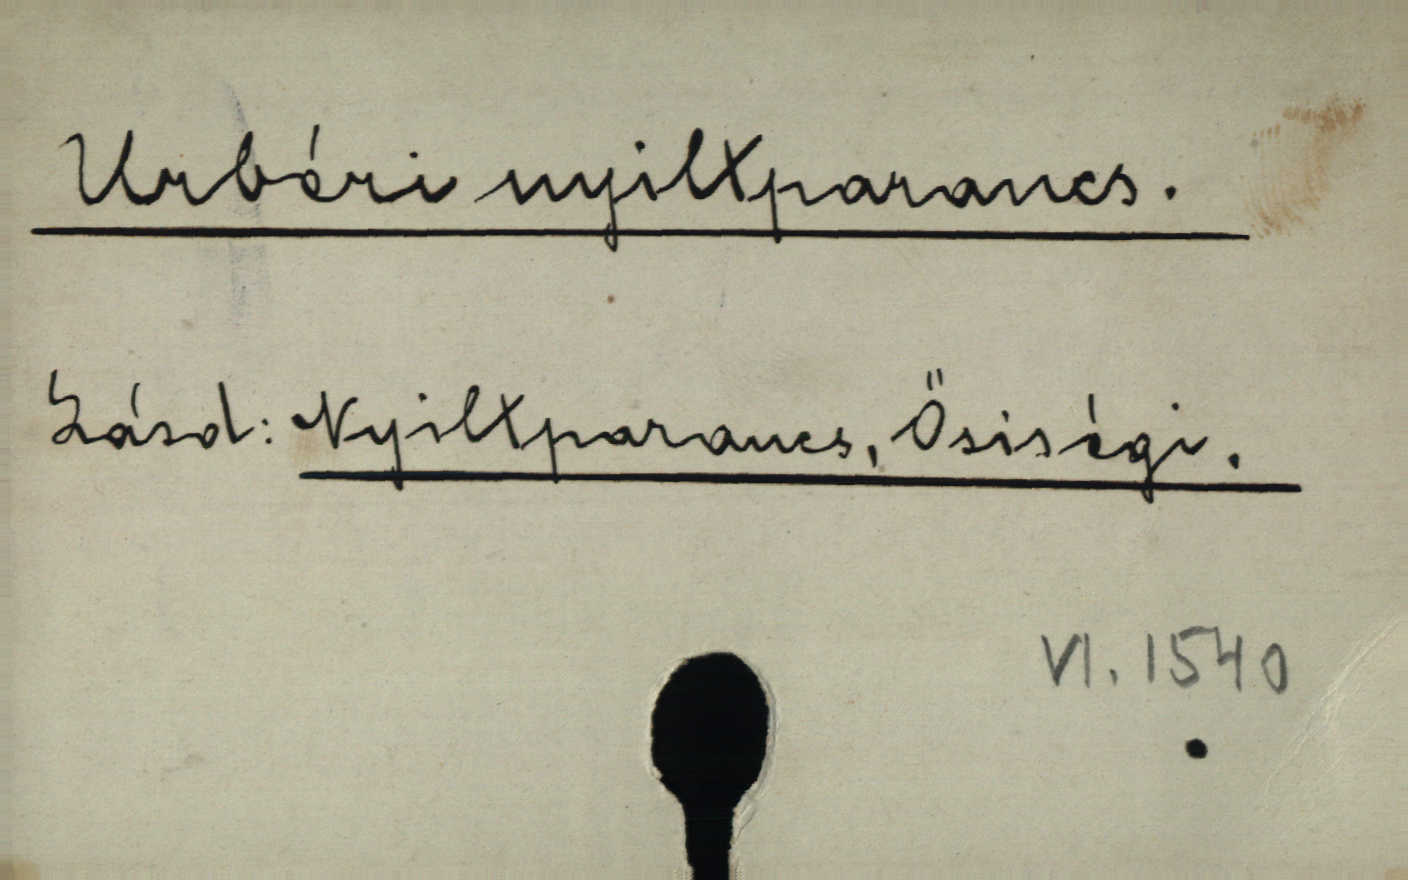 Urbéri nyiltparancs.
Lásd: Nyiltparancs, Ősiségi.
VI. 1540